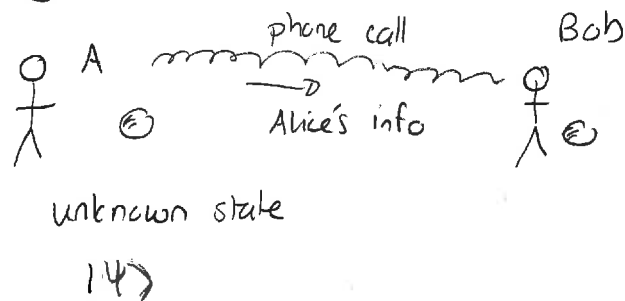 phone call
Bob
A
Alice's info
unknown state
|ψ>